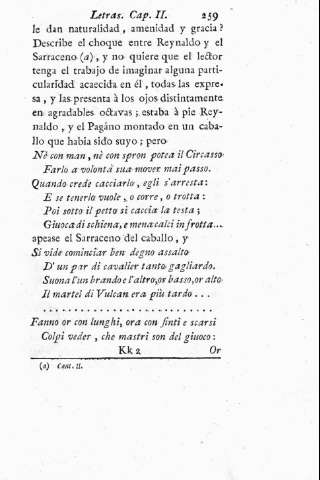 Letras. Cap. II. 259
le dan naturalidad, amenidad y gracia?
Describe el choque entre Reynaldo y el
Sarraceno (a), y no quiere que el lector
tenga el trabajo de imaginar alguna parti-
cularidad acaecida en él, todas las expre-
sa, y las presenta á los ojos distintamente
en agradables octavas; estaba á pie Rey-
naldo, y el Pagáno montado en un caba-
llo que habia sido suyo; pero
Nè con man, nè con spron potea il Circasso
Farlo a volontà sua mover mai passo.
Quando crede cacciarlo, egli s'arresta:
E se tenerlo vuole, o corre, o trotta:
Poi sotto il petto si caccia la testa;
Giuoca di schiena, e mena calci in frotta...
apease el Sarraceno del caballo, y
Si vide cominciar ben degno assalto
D'un par di cavalier tanto gagliardo.
Suona l'un brando e l'altro, or basso, or alto
Il martel di Vulcan era più tardo...
..........................
Fanno or con lunghi, ora con finti e scarsi
Colpi veder, che mastri son del giuoco:
Kk 2 Or
(a) Cant. II.